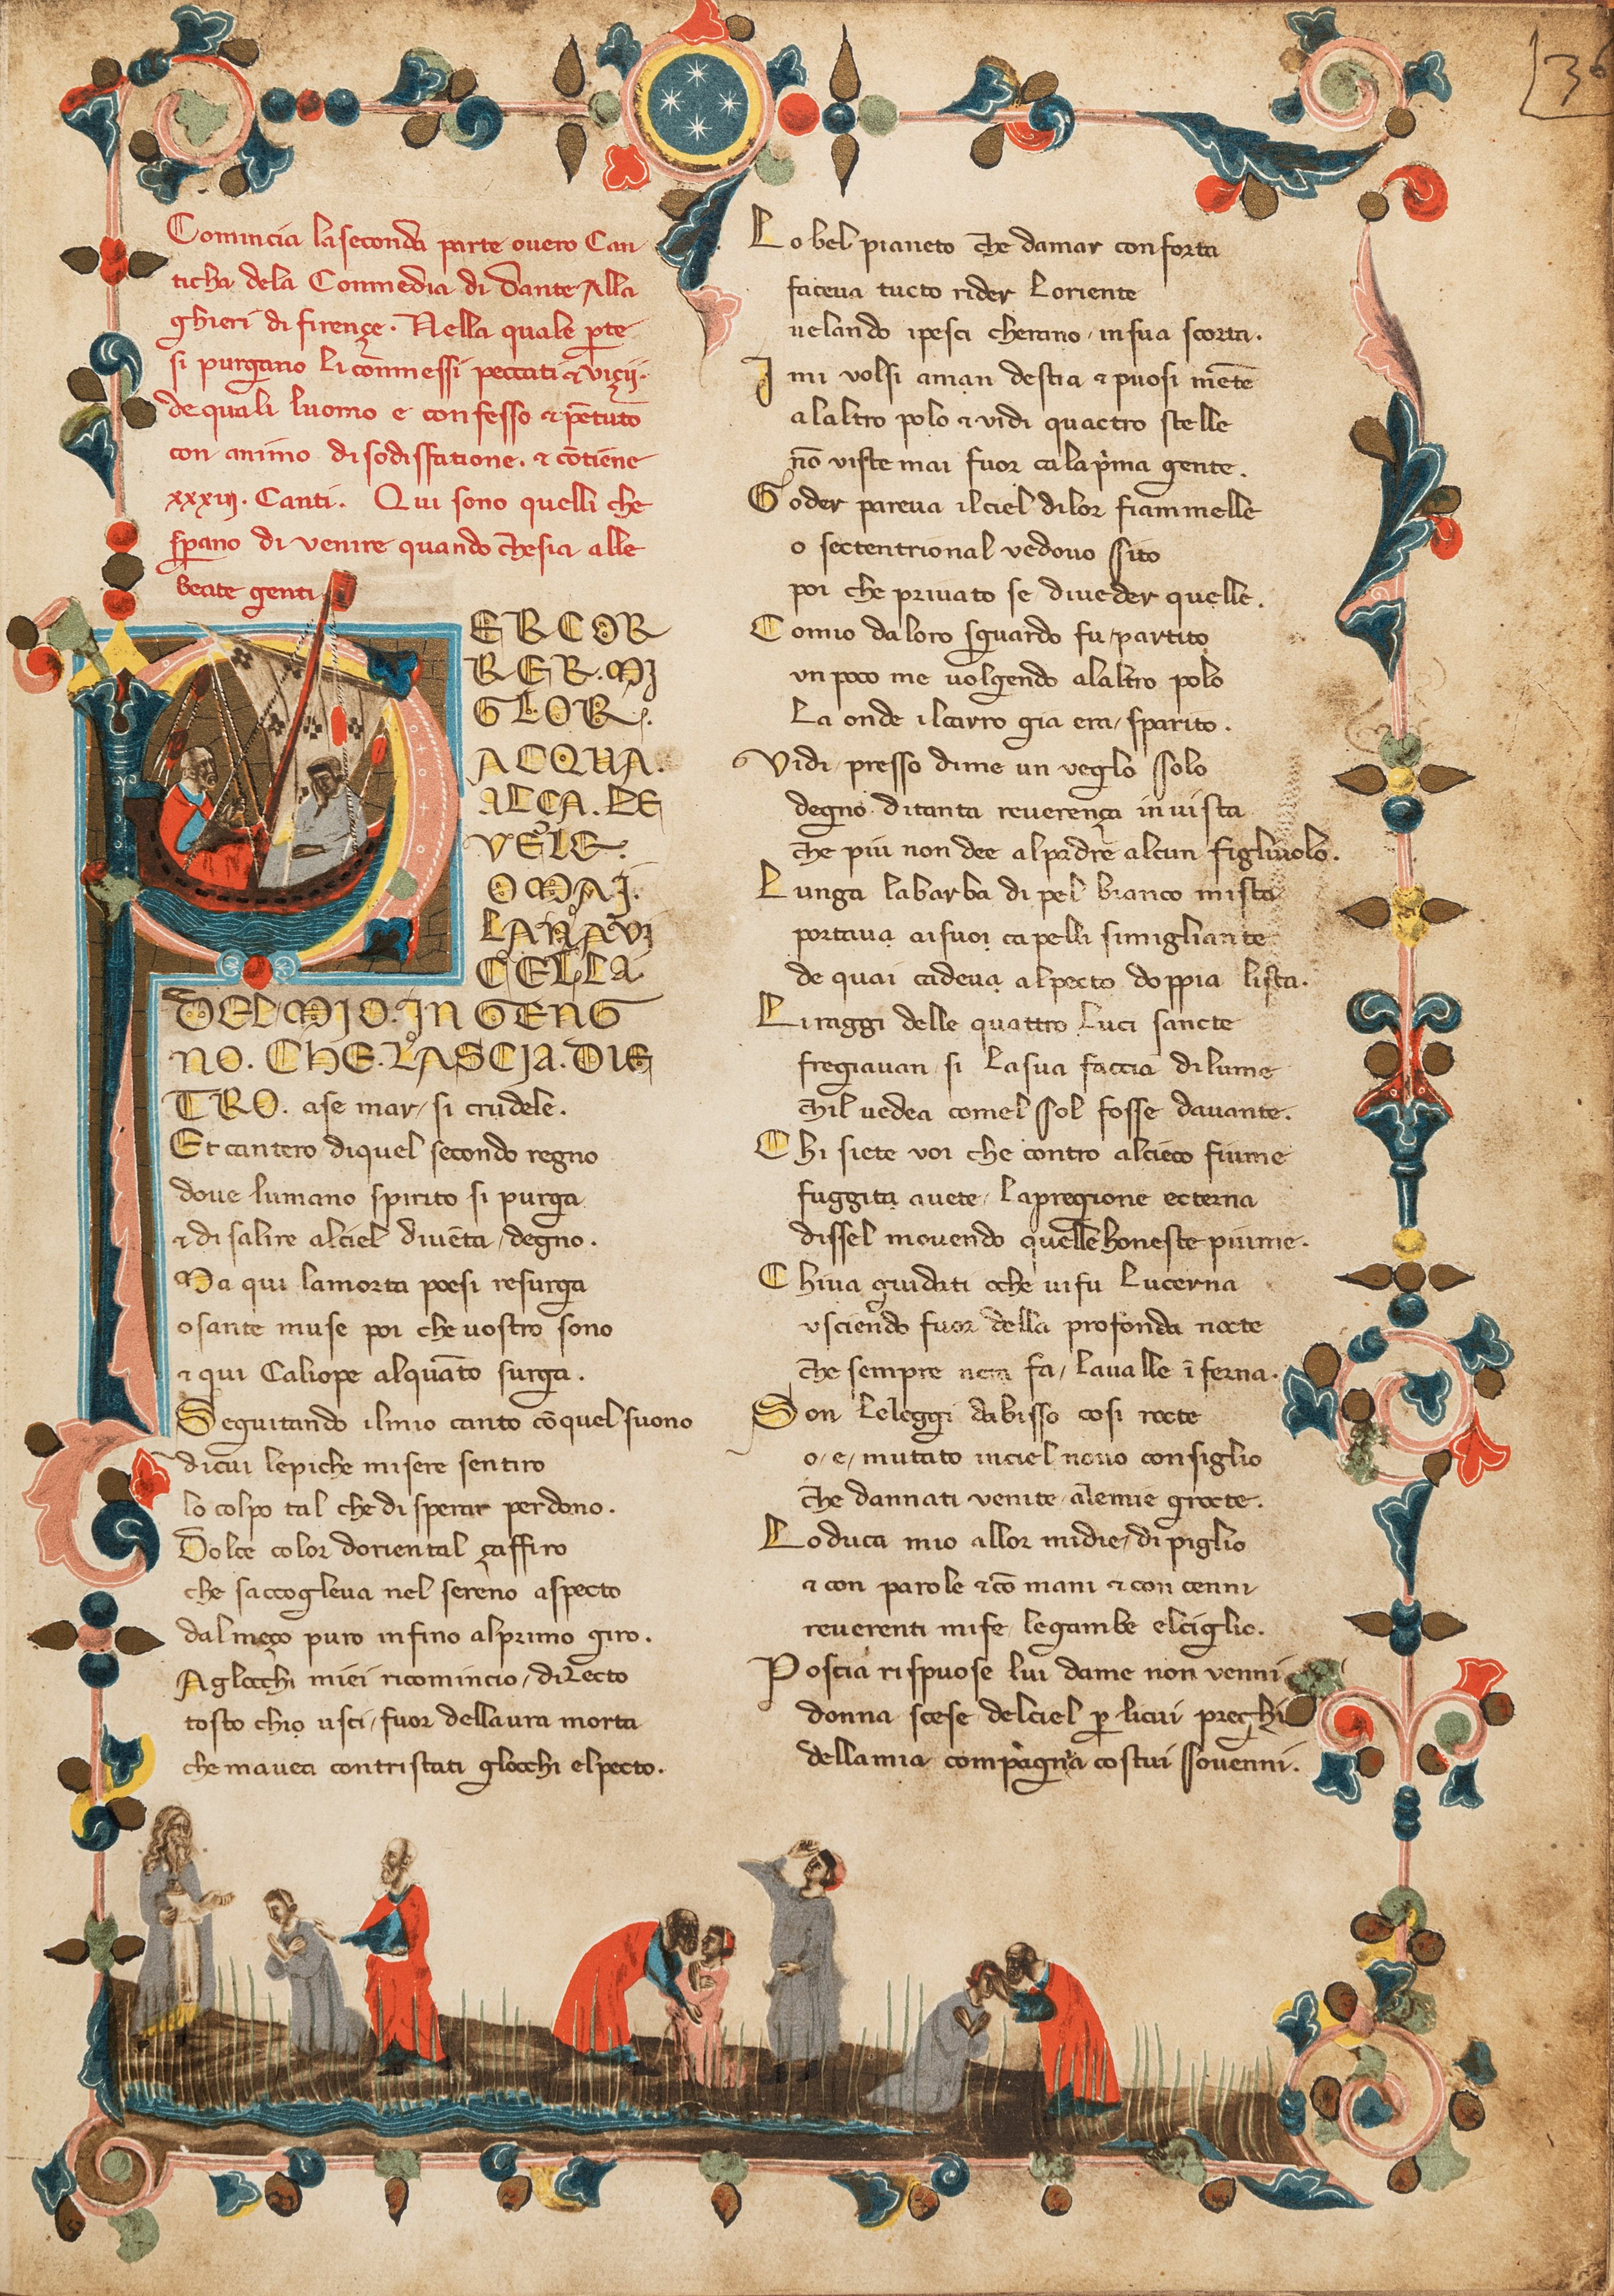 36
Comincia la seconda parte overo Can
ticha dela Commedia di Dante Alla
ghieri di firençe. Nella quale pte
si purgano li commessi peccati ⁊ viçij.
de quali luomo e confesso ⁊ pētuto
con animo di sodisfatione. ⁊ cōtiene
xxxiij. Canti. Qui sono quelli che
sperano di venire quando che sia alle
beate genti
PER COR
RER. MI
GLOR.
ACQUA.
ALÇA. LE
VELE.
OMAI.
LA NAVI
CELLA
DEL MIO. INGENG
NO. CHE. LASCIA. DIE
TRO. a se mar si crudele.
Et cantero di quel secondo regno
doue lumano spirito si purga
⁊ di salire al ciel diuēta degno.
Ma qui la morta poesi resurga
o sante muse poi che uostro sono
⁊ qui Caliope alquāto surga.
Seguitando il mio canto cō quel suono
di cui le piche misere sentiro
lo colpo tal che disperar perdono.
Dolce color doriental çaffiro
che saccogleva nel sereno aspecto
dal meço puro infino al primo giro.
A glocchi miei ricomincio dilecto
tosto chio usci fuor dellaura morta
che mavea contristati glocchi el pecto.
Lo bel pianeto che damar conforta
faceva tucto rider loriente
uelando i pesci cherano in sua scorta.
I mi volsi a man destra ⁊ puosi mēte
a laltro polo ⁊ vidi quactro stelle
nō viste mai fuor ca la prima gente.
Goder pareva il ciel di lor fiammelle
o sectentrional vedovo sito
poi che privato se di veder quelle.
Comio da loro sguardo fu partito
vn poco me volgendo a laltro polo
La onde il carro gia era sparito.
Vidi presso di me un veglo solo
degno di tanta reverença in vista
che piu non dee a padre alcun figliuolo.
Lunga la barba di pel bianco mista
portava ai suoi capelli simigliante
de quai cadeva al pecto doppia lista.
Li raggi delle quattro Luci sancte
fregiavan si La sua faccia di lume
chil vedea comel sol fosse davante.
Chi siete voi che contro al cieco fiume
fuggita avete la pregione ecterna
dissel movendo quelle honeste piume.
Chi va guidati o che vi fu Lucerna
vsciendo fuor della profonda nocte
che sempre nera fa la valle īferna.
Son Le leggi dabisso cosi rocte
o e mutato in ciel novo consiglio
che dannati venite a le mie grocte.
Lo duca mio allor mi die di piglio
⁊ con parole ⁊ cō mani ⁊ con cenni
reverenti mi fe le gambe el ciglio.
Poscia rispuose lui da me non venni
donna scese del ciel per li cui preghi
della mia compagna costui sovenni.